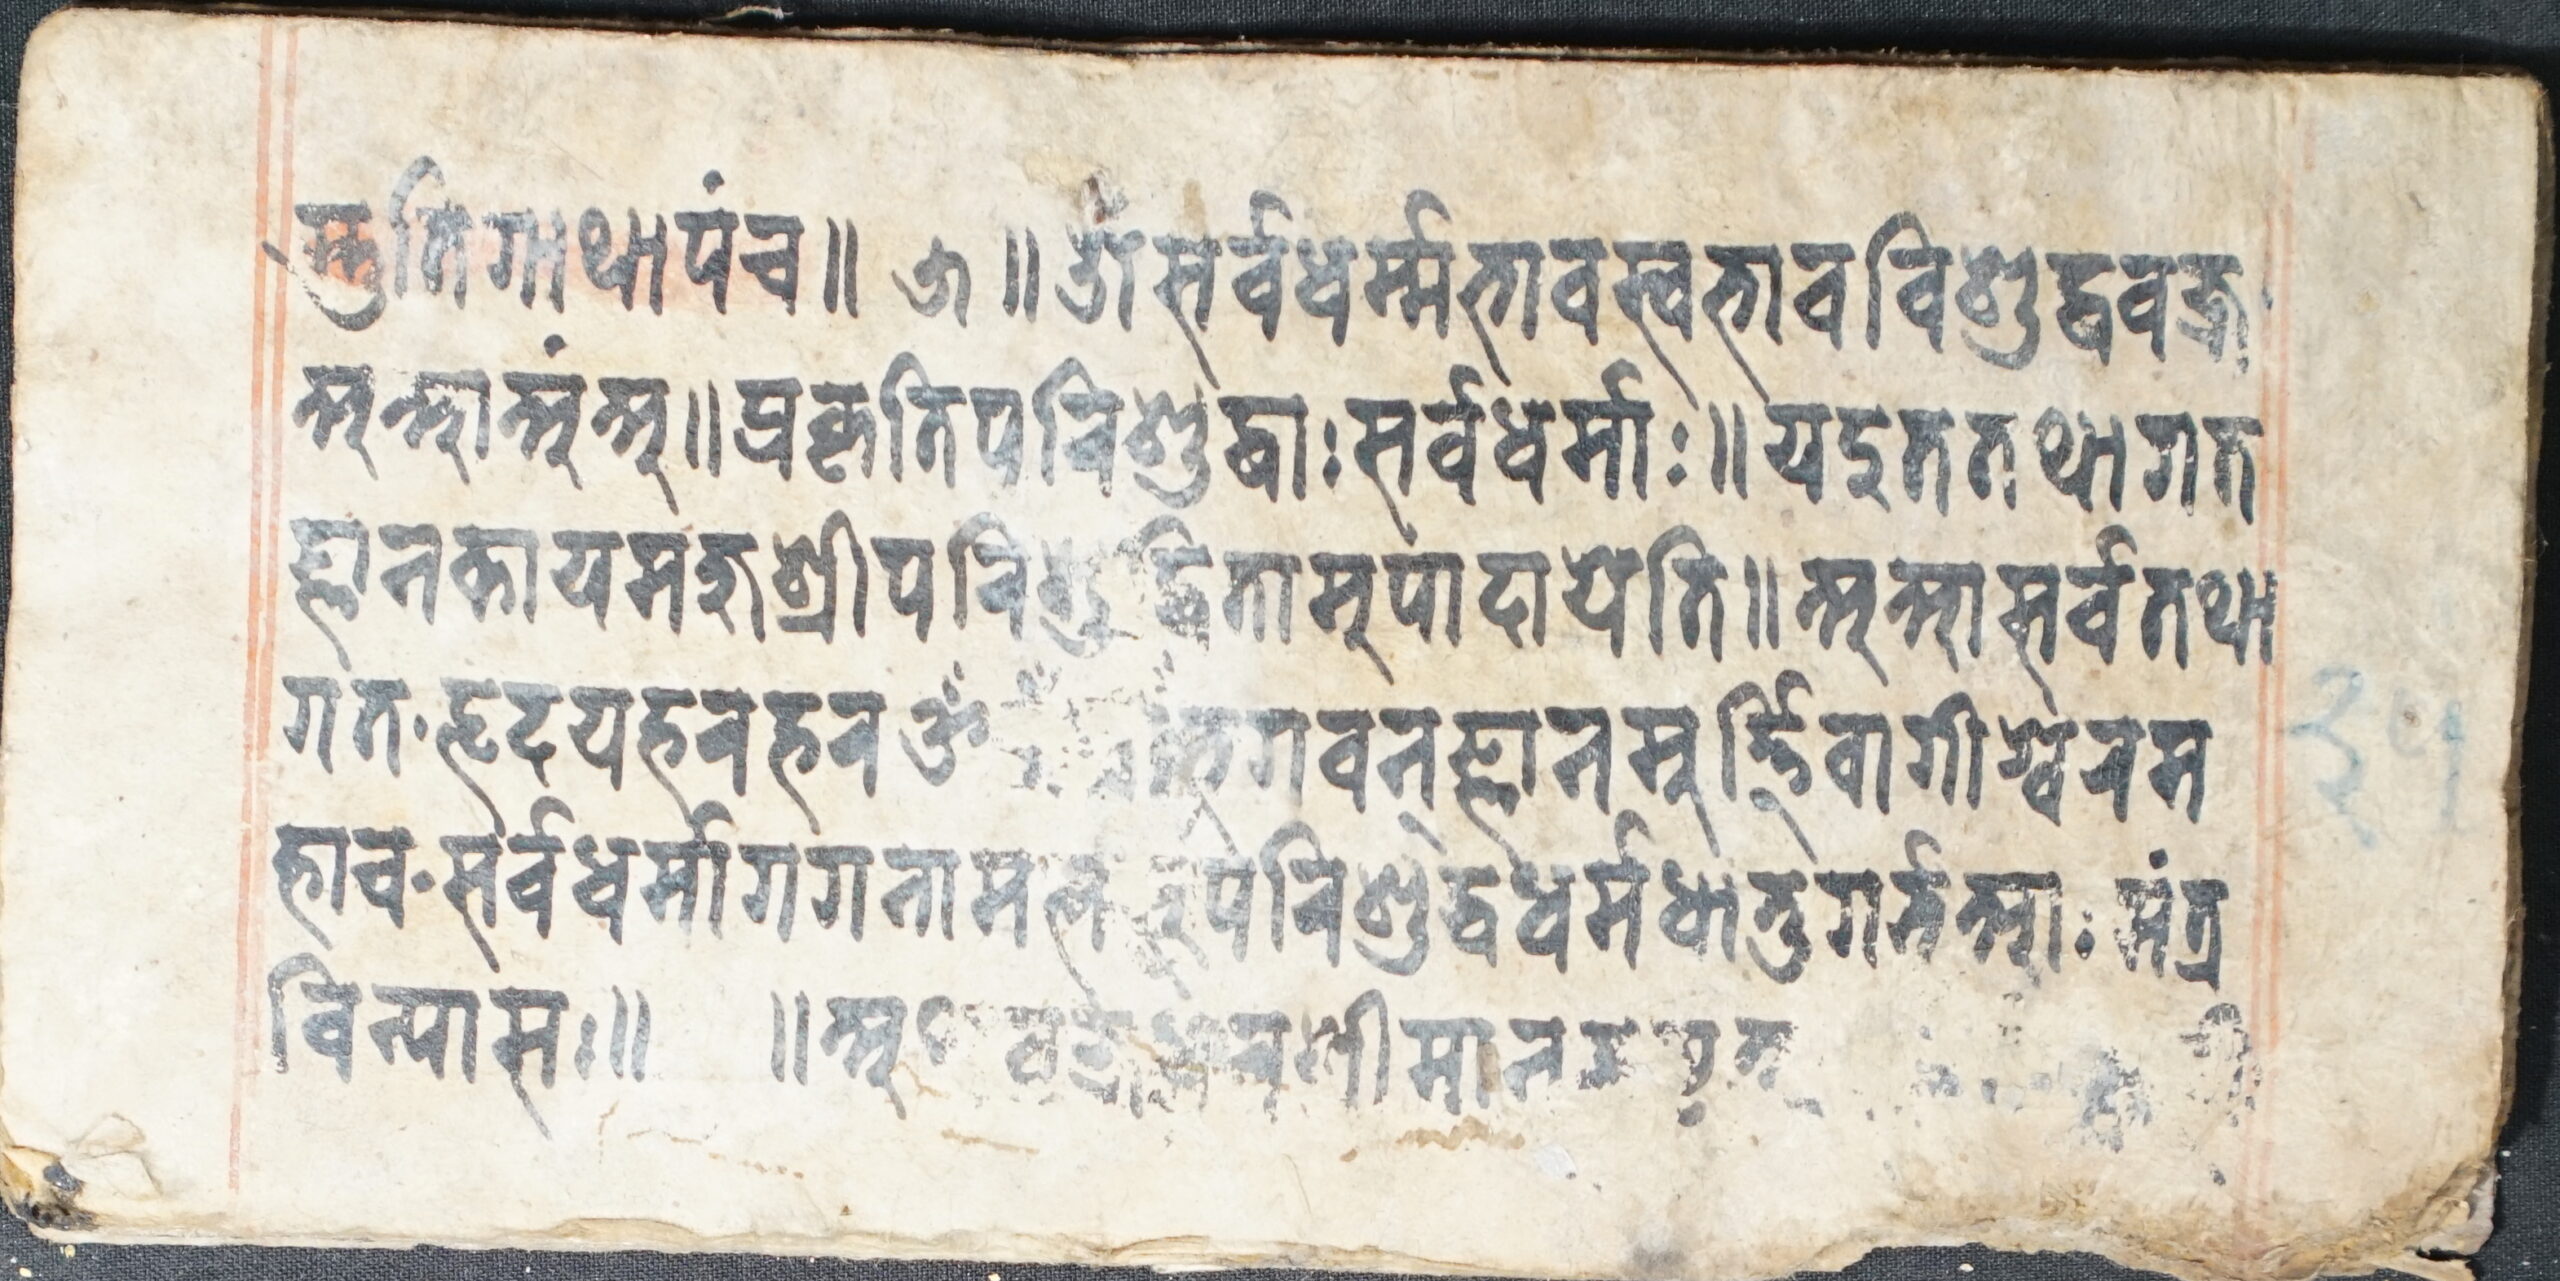 स्तुतिगाथापंच॥ ७ ॥ ॐ सर्वधर्म्मभावस्वभावविशुद्धवज्र
अआअंअ॥ प्रकृतिपरिशुद्धाः सर्वधर्माः॥ यदुततथागत
ज्ञानकायमञ्जुश्रीपरिशुद्धितामुपादायेति॥ अआसर्वतथा
गत·हृदयहरहरॐ भगवन्ज्ञानमूर्त्तिवागीश्वरम
हावच·सर्वधर्मागगनामल सुपरिशुद्धधर्मधातुगर्भआः मंत्र
विन्यासः॥ ॥ अथ वज्रधरश्रीमान
२५